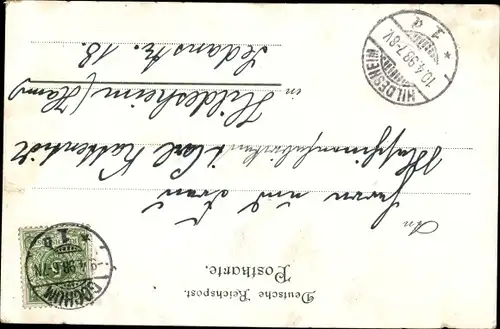 Deutsche Reichspost.
Postkarte.
An
Herrn und Frau
Carl
in Hildesheim (Hann)
Sedanstr. 18.
BOCHUM
9.4.98. 5-6N.
* 1 b
HILDESHEIM
10.4.98. 7-8V.
* 1 a